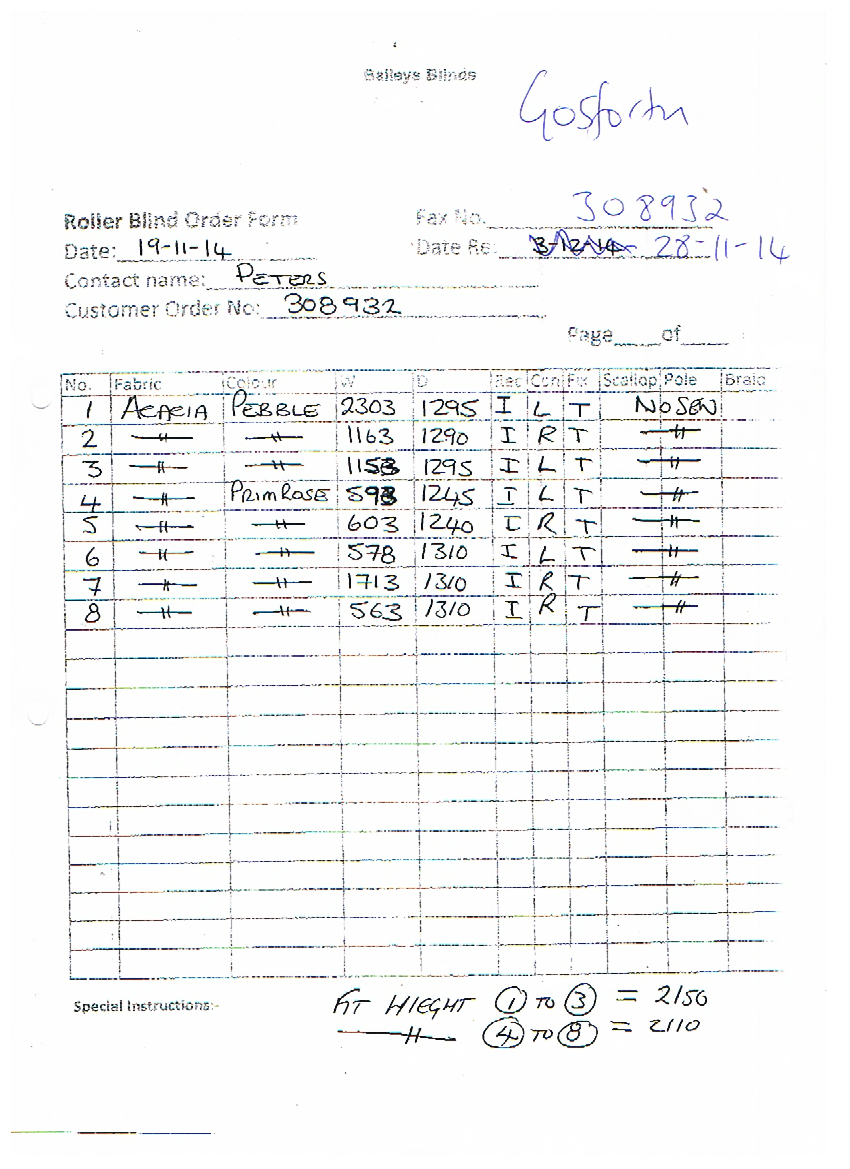 Baileys Blinds
Gosforth
Roller Blind Order Form
Fax No. 308932
Date: 19-11-14
Date Re: 3-12-14 28-11-14
Contact name: PETERS
Customer Order No: 308932
Page____of____
No. Fabric Colour W D Rec Con Fix Scallop Pole Braid
1 ACACIA PEBBLE 2303 1295 I L T NO SEW
2 —〃— —〃— 1163 1290 I R T —〃—
3 —〃— —〃— 1158 1295 I L T —〃—
4 —〃— PRIMROSE 598 1245 I L T —〃—
5 —〃— —〃— 603 1240 I R T —〃—
6 —〃— —〃— 578 1310 I L T —〃—
7 —〃— —〃— 1713 1310 I R T —〃—
8 —〃— —〃— 563 1310 I R T —〃—
Special Instructions:- FIT HIEGHT 1 TO 3 = 2150
—〃— 4 TO 8 = 2110